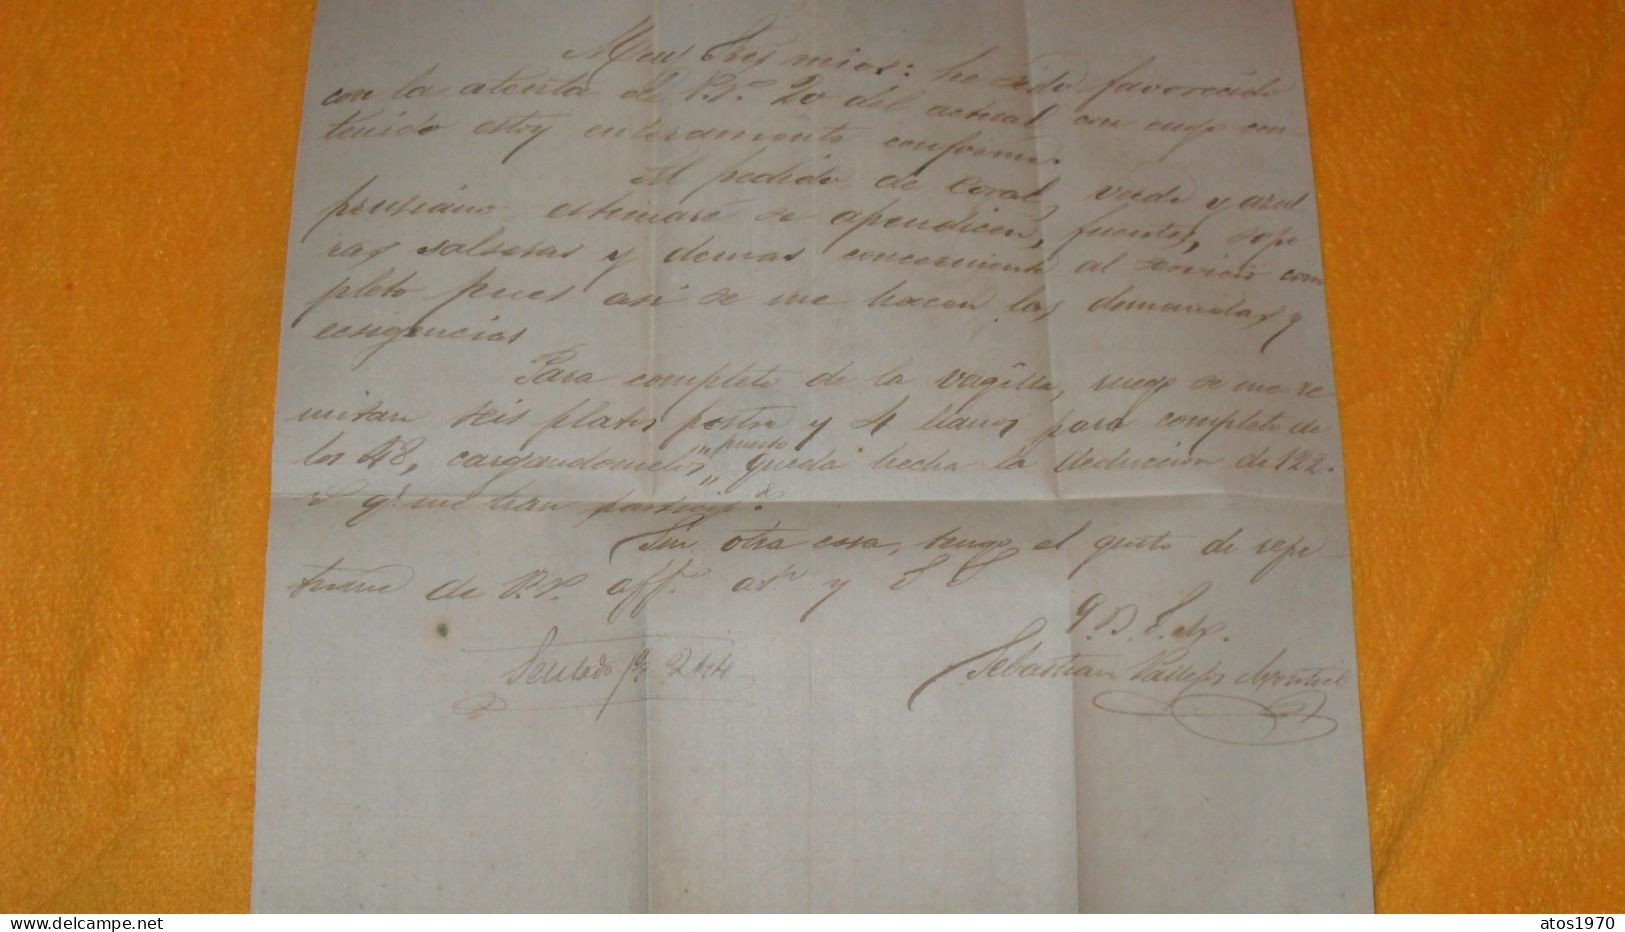 Muy Sres mios: he sido favorecido
con la atenta de V.V. 20 del actual con cuyo con-
tenido estoy enteramente conforme.
Al pedido de Coral, verde y azul
prusiano, estimaré se apendicen, fuentes, sope
ras, salseras y demas concerniente al servicio com
pleto pues asi se me hacen las demandas y
ecsigencias
Para completo de la vagilla, ruego se me re
mitan seis platos postre y 4 llanos para completo de
los 48, cargandomelos, "puesto" queda hecha la deduccion de 122.
q.e me han particip.o
Sin otra cosa, tengo el gusto de repe
tirme de V.V. aff.mo at.o y S S
Q. B. S. M.
Sebastian Vallejos
atos1970